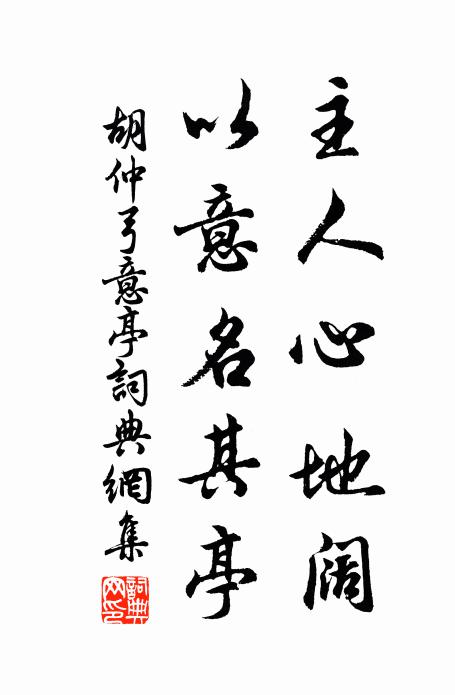 主人心地阔
以意名其亭
胡仲弓意亭詞典網集
詞典网印